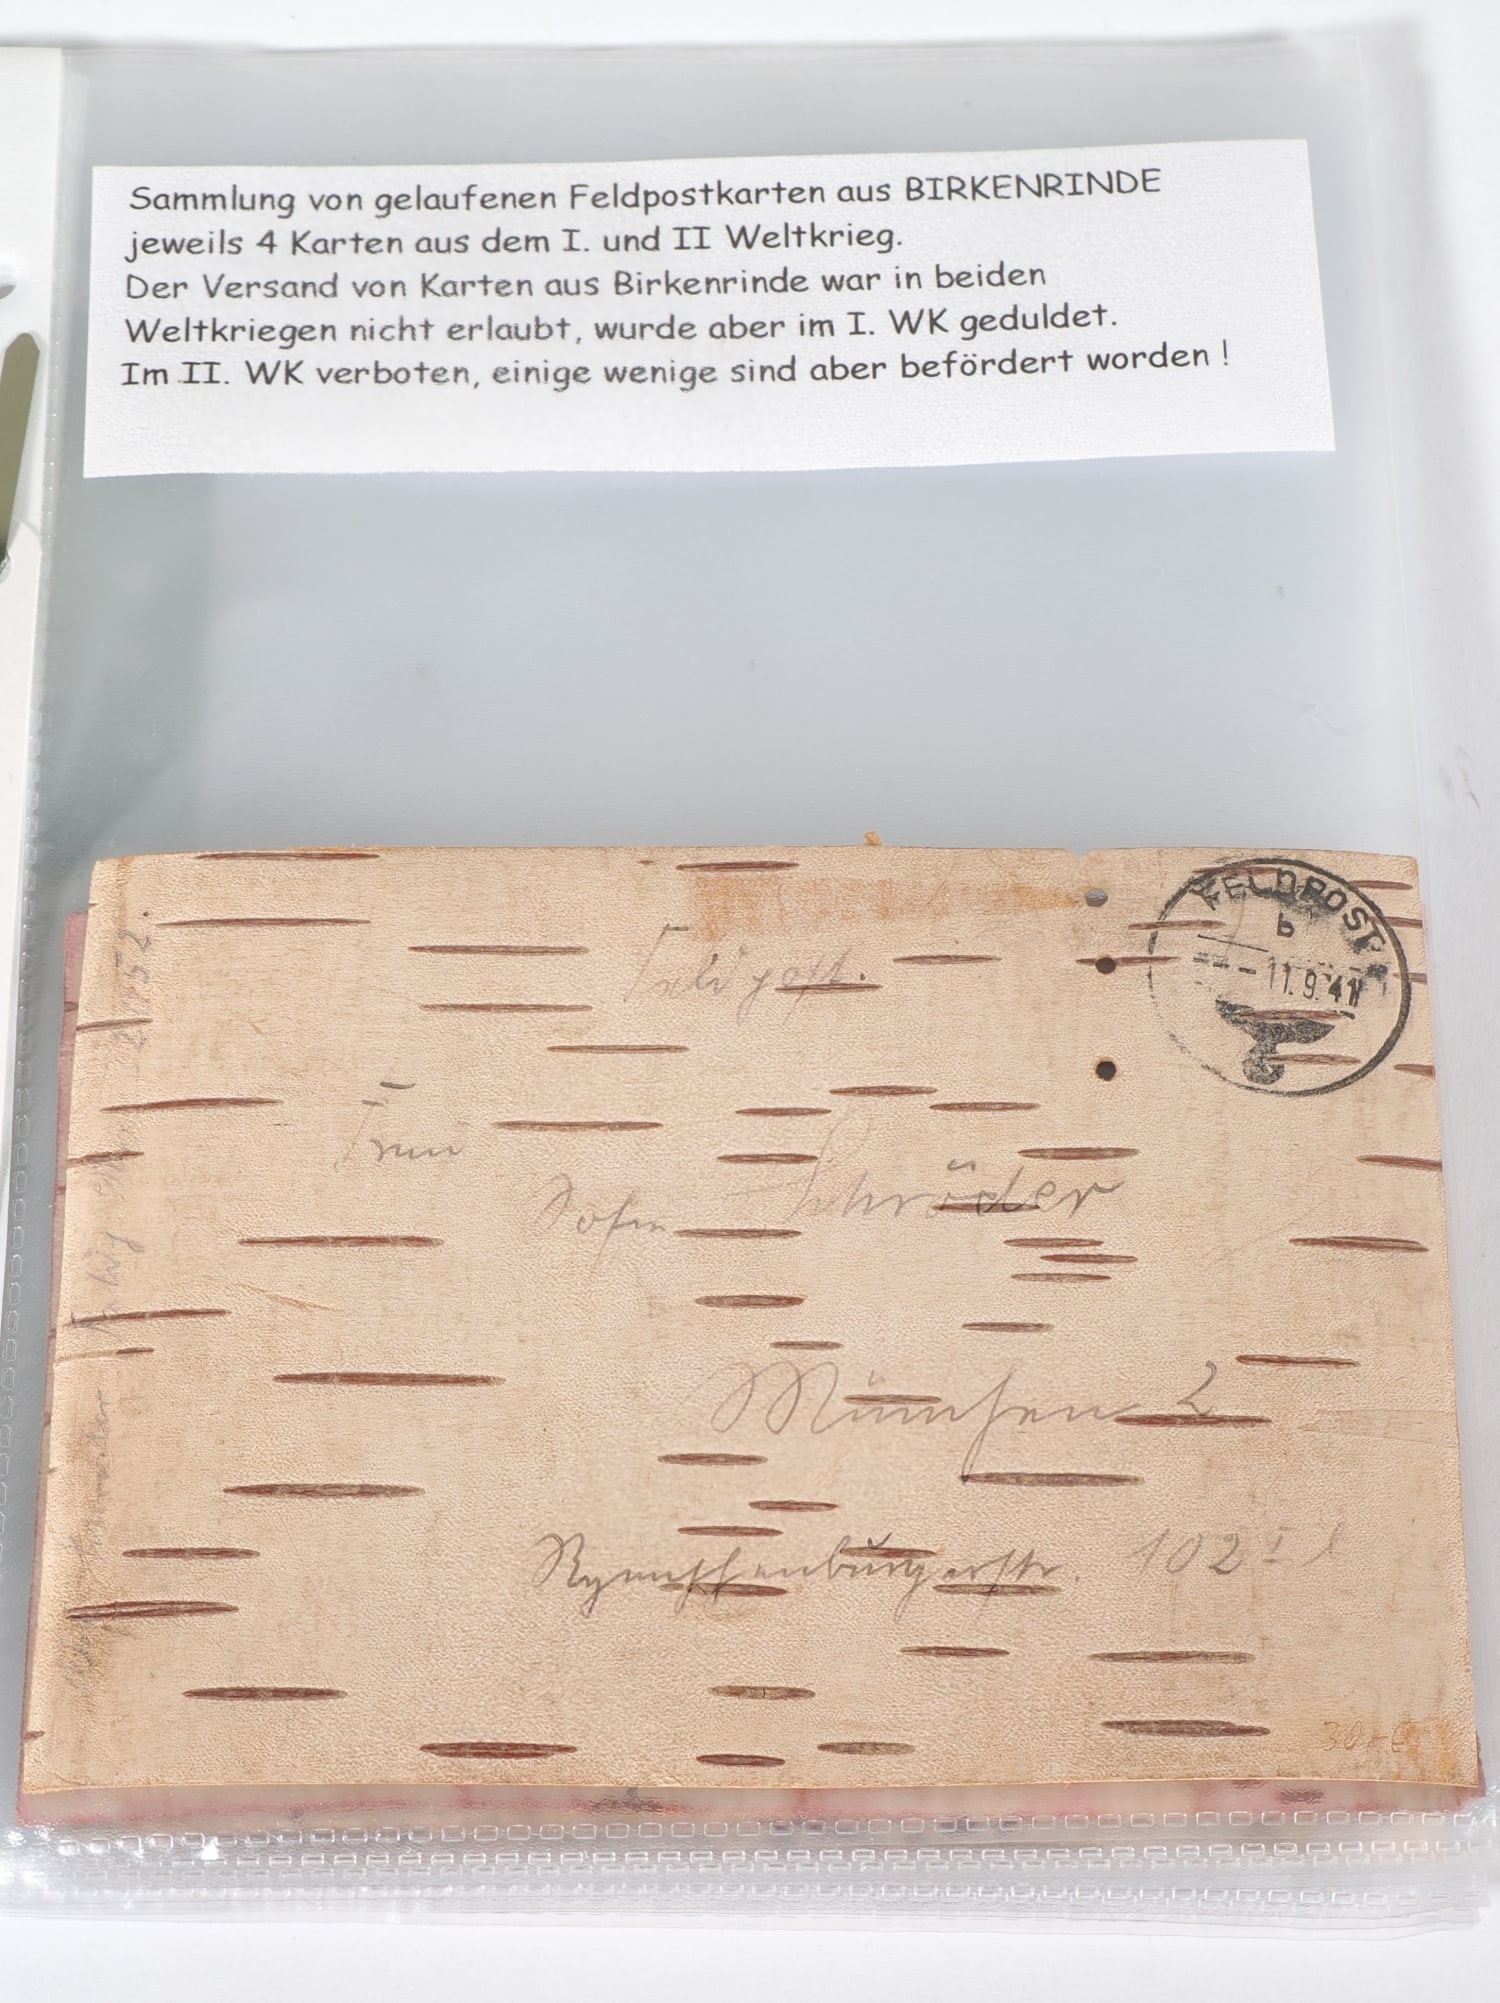 Sammlung von gelaufenen Feldpostkarten aus BIRKENRINDE
jeweils 4 Karten aus dem I. und II Weltkrieg.
Der Versand von Karten aus Birkenrinde war in beiden
Weltkriegen nicht erlaubt, wurde aber im I. WK geduldet.
Im II. WK verboten, einige wenige sind aber befördert worden !
FELDPOST
b
11.9.41
Feldpost.
Frau
Schröder
München 2
Nymphenburgerstr. 102